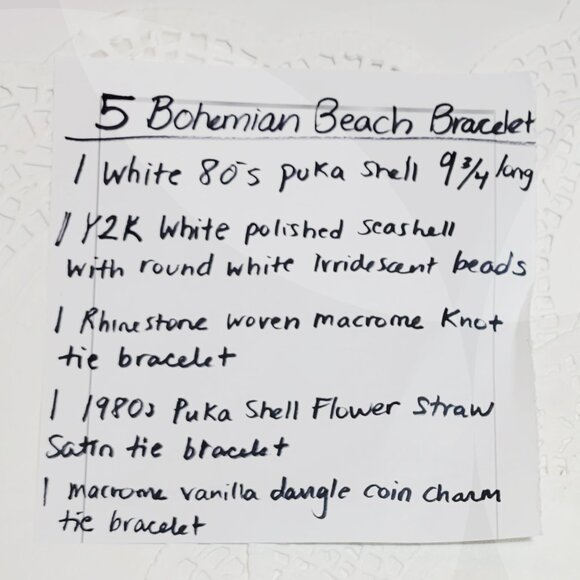 5 Bohemian Beach Bracelet
1 White 80's puka shell 9 3/4 long
1 Y2K White polished seashell
with round white irridescent beads
1 Rhinestone woven macrome Knot
tie bracelet
1 1980s Puka Shell Flower Straw
Satin tie bracelet
1 macrome vanilla dangle coin charm
tie bracelet